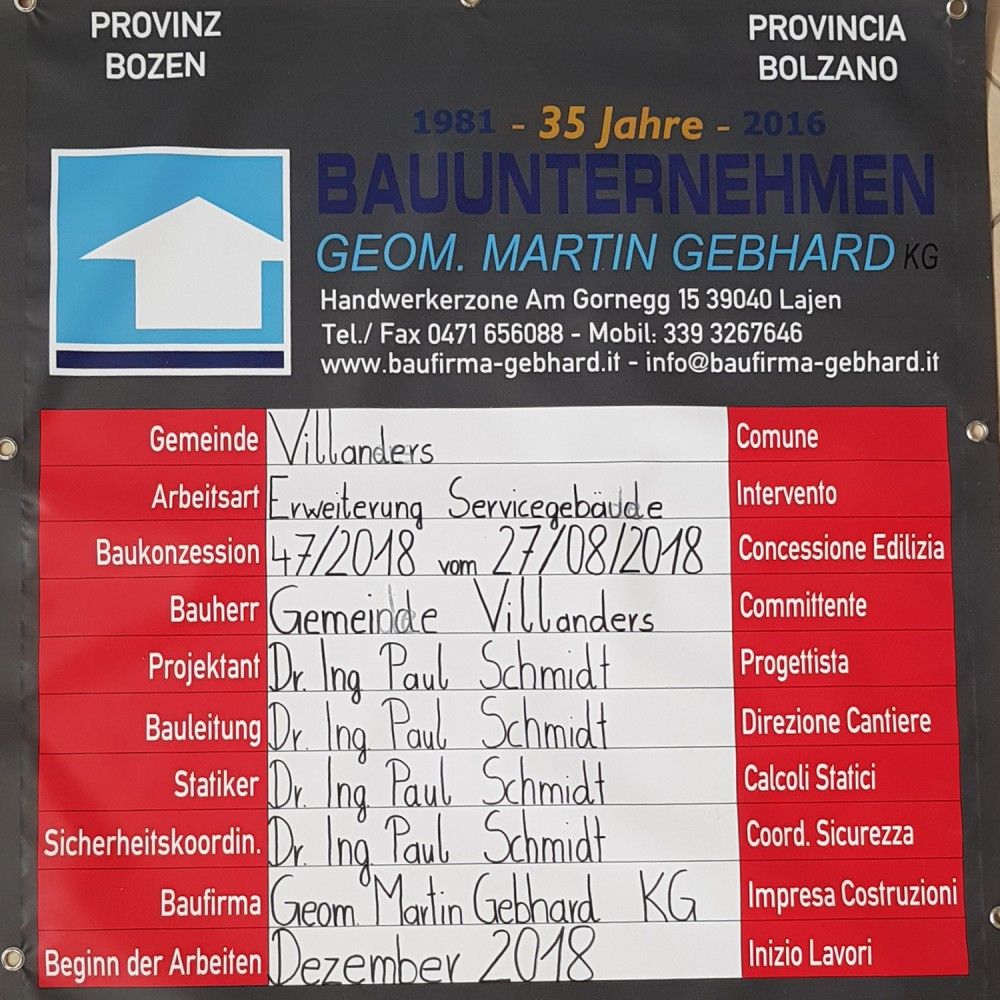 PROVINZ BOZEN
PROVINCIA BOLZANO
1981 - 35 Jahre - 2016
BAUUNTERNEHMEN
GEOM. MARTIN GEBHARD KG
Handwerkerzone Am Gornegg 15 39040 Lajen
Tel./ Fax 0471 656088 - Mobil: 339 3267646
www.baufirma-gebhard.it - info@baufirma-gebhard.it
Gemeinde Villanders Comune
Arbeitsart Erweiterung Servicegebäude Intervento
Baukonzession 47/2018 vom 27/08/2018 Concessione Edilizia
Bauherr Gemeinde Villanders Committente
Projektant Dr. Ing Paul Schmidt Progettista
Bauleitung Dr. Ing Paul Schmidt Direzione Cantiere
Statiker Dr. Ing Paul Schmidt Calcoli Statici
Sicherheitskoordin. Dr. Ing Paul Schmidt Coord. Sicurezza
Baufirma Geom. Martin Gebhard KG Impresa Costruzioni
Beginn der Arbeiten Dezember 2018 Inizio Lavori